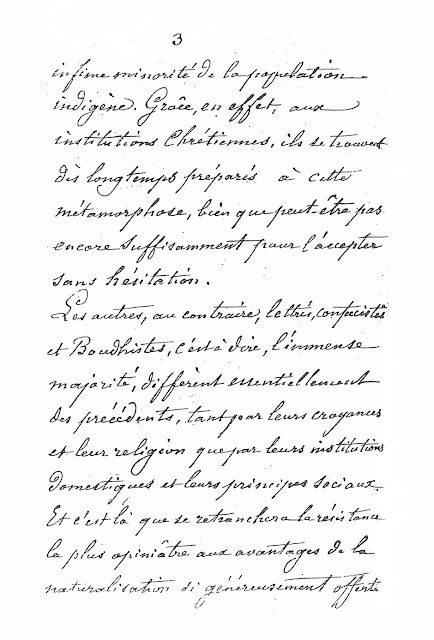 3
infime minorité de la population
indigène. Grâce, en effet, aux
institutions Chrétiennes, ils se trouvent
dès longtemps préparés à cette
métamorphose, bien que peut-être pas
encore suffisamment pour l'accepter
sans hésitation.
Les autres, au contraire, lettrés, confucistes
et Boudhistes, c'est à dire, l'immense
majorité, diffèrent essentiellement
des précédents, tant par leurs croyances
et leur religion que par leurs institutions
domestiques et leurs principes sociaux.
Et c'est là que se retranchera la résistance
la plus opiniâtre aux avantages de la
naturalisation si généreusement offerte